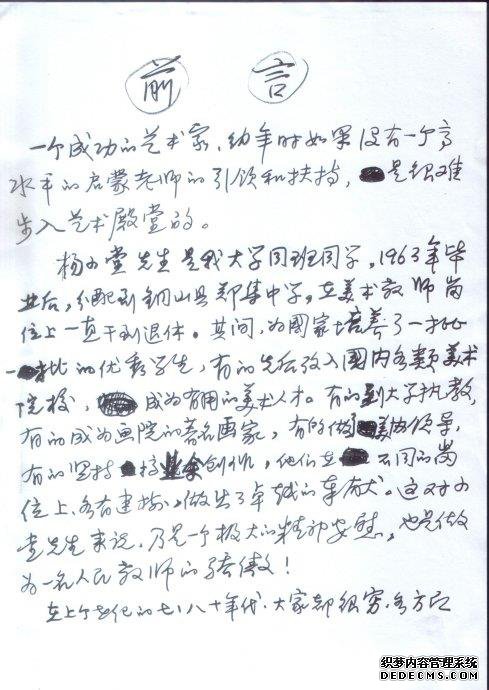 前 言
一个成功的艺术家,幼年时如果没有一个高
水平的启蒙老师的引领和扶持,是很难
步入艺术殿堂的。
杨小堂先生是我大学同班同学,1963年毕
业后,分配到铜山县郑集中学,在美术教师岗
位上一直干到退休。其间,为國家培养了一批
一批的优秀学生,有的先后考入國内各类美术
院校,成为有用的美术人才。有的到大学执教,
有的成为画院的著名画家,有的做美协领导,
有的坚持搞业余创作,他们在不同的岗
位上,各有建树,做出了卓越的贡献。这对小
堂先生来说,乃是一个极大的精神安慰,也是做
为一名人民教师的骄傲!
在上个世纪的七、八十年代,大家都很穷,各方面
织梦内容管理系统
DEDECMS.COM